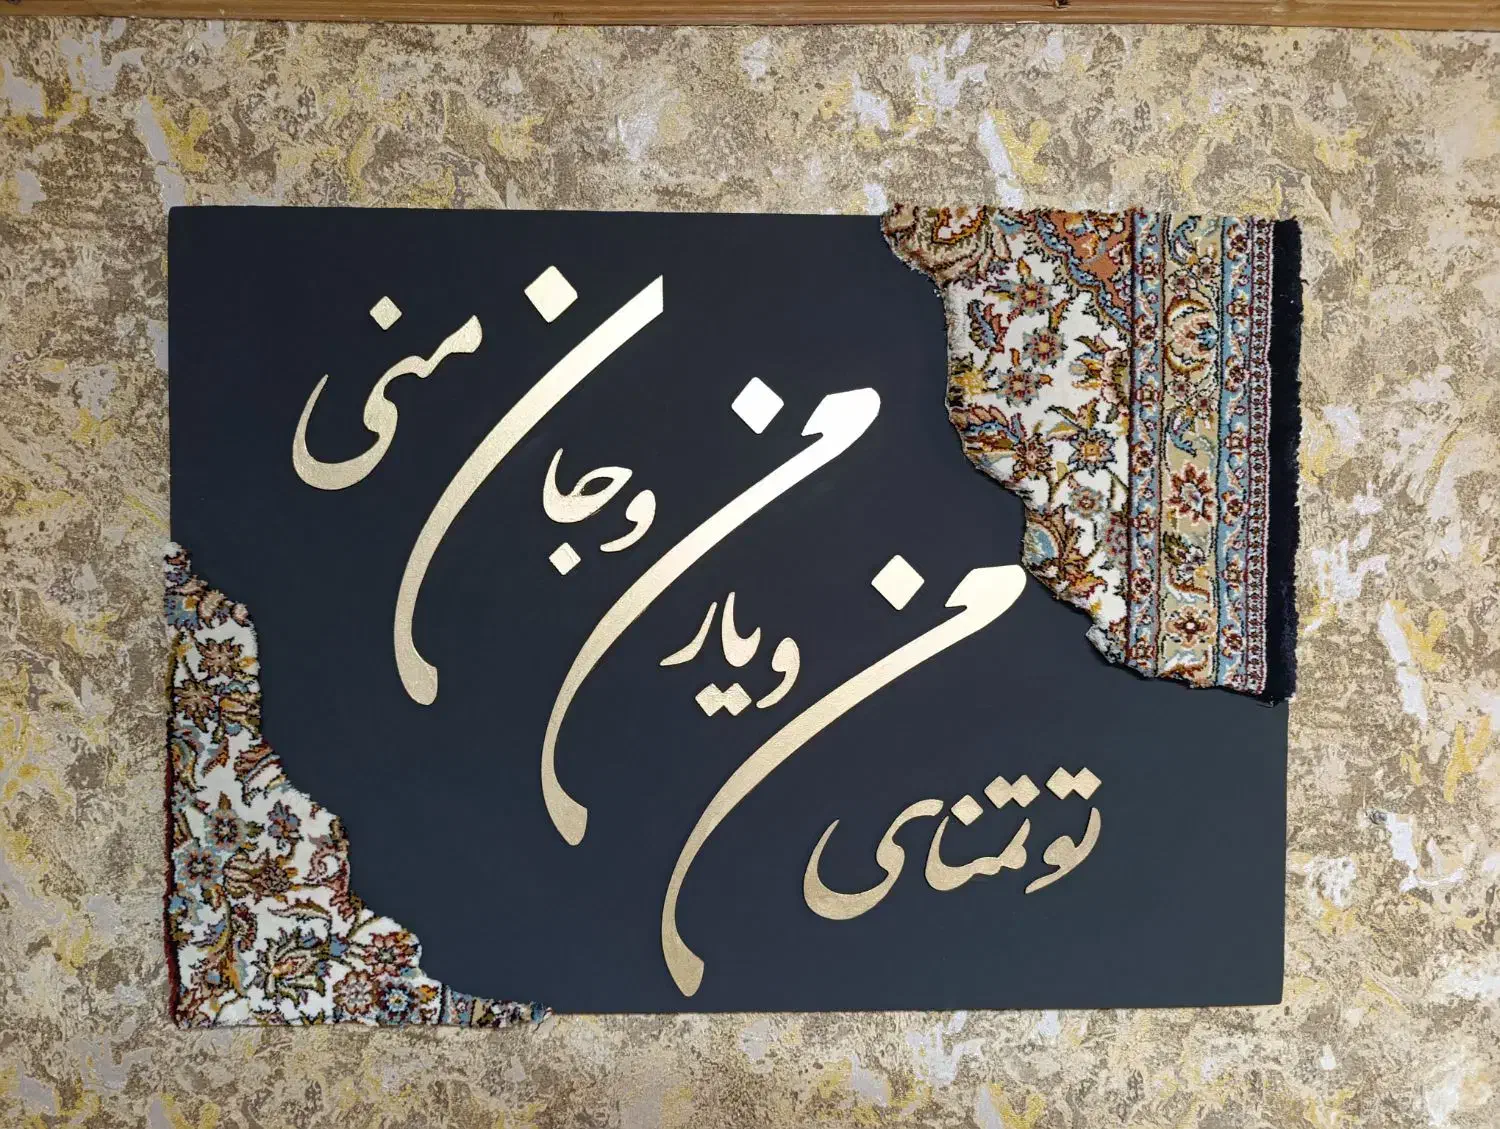 تو تمنای من
و یار من
و جان منی